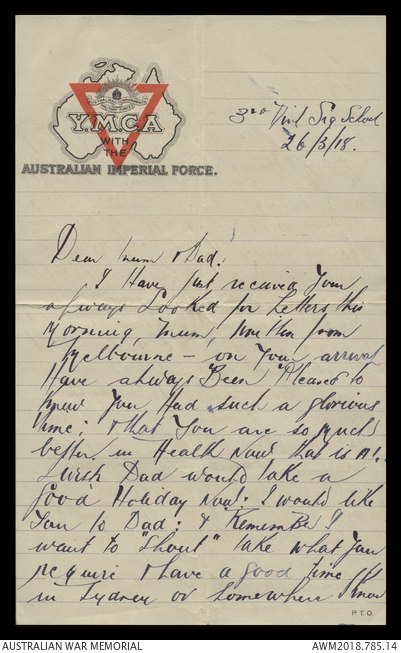 Y.M.C.A
WITH
THE
AUSTRALIAN IMPERIAL FORCE.
3rd Divl Sig School
26/3/18.
Dear Mum & Dad.
I Have just received Your
always Looked for Letters this
Morning, Mum, written from
Melbourne – on Your arrival
Have always Been Pleased to
know You Had such a glorious
time: & that You are so much
better in Health Now that is A1.
Wish Dad would take a
good Holiday Now: I would like
You to Dad: & Remember I
want to "shout" take what You
require & have a good time
in Sydney or somewhere I know
P.T.O.
AUSTRALIAN WAR MEMORIAL
AWM2018.785.14